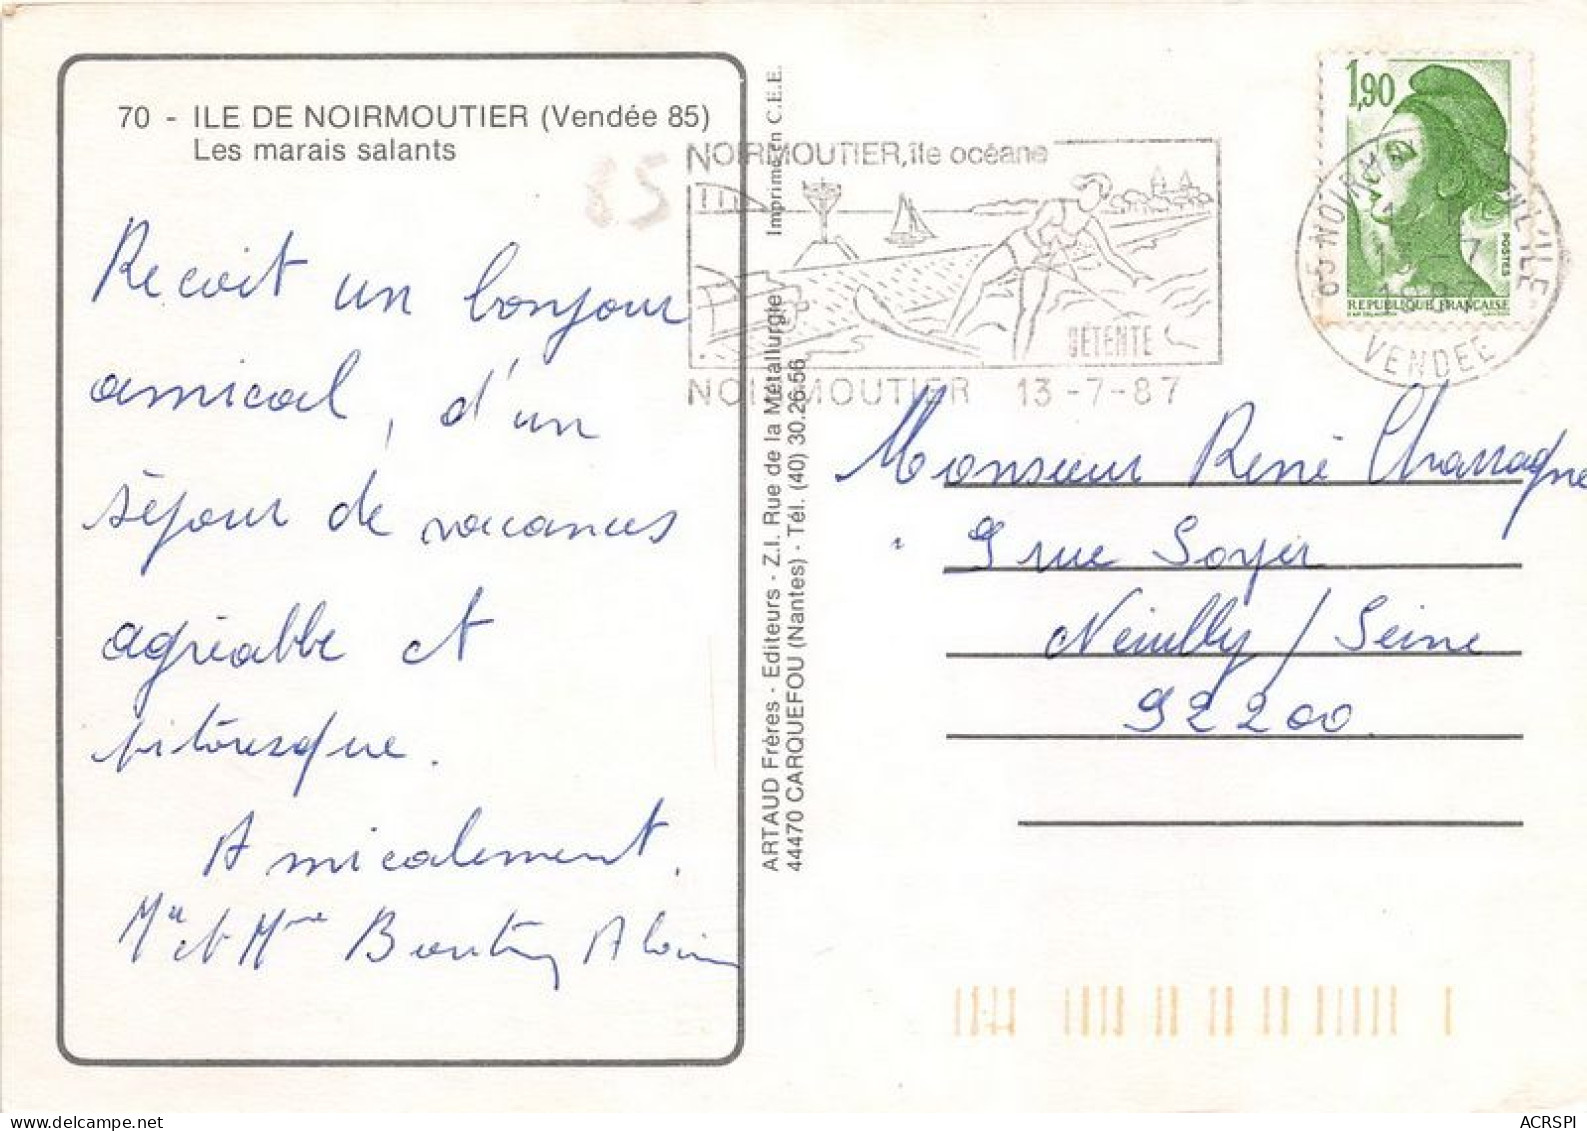 70 - ILE DE NOIRMOUTIER (Vendée 85)
Les marais salants
Recoit un bonjour
amical, d'un
séjour de vacances
agréable et
pittoresque.
Amicalement.
Mr et Mme Alain
ARTAUD Frères - Editeurs - Z.I. Rue de la Métallurgie
44470 CARQUEFOU (Nantes) - Tél. (40) 30.26.56
Imprimé en C.E.E.
85
NOIRMOUTIER, île océane
DÉTENTE
NOIRMOUTIER 13-7-87
1,90
POSTES
REPUBLIQUE FRANÇAISE
EN L'ILE
VENDEE
Monsieur René Chassagne
9 rue Soyer
Neuilly / Seine
92200.
ACRSPI